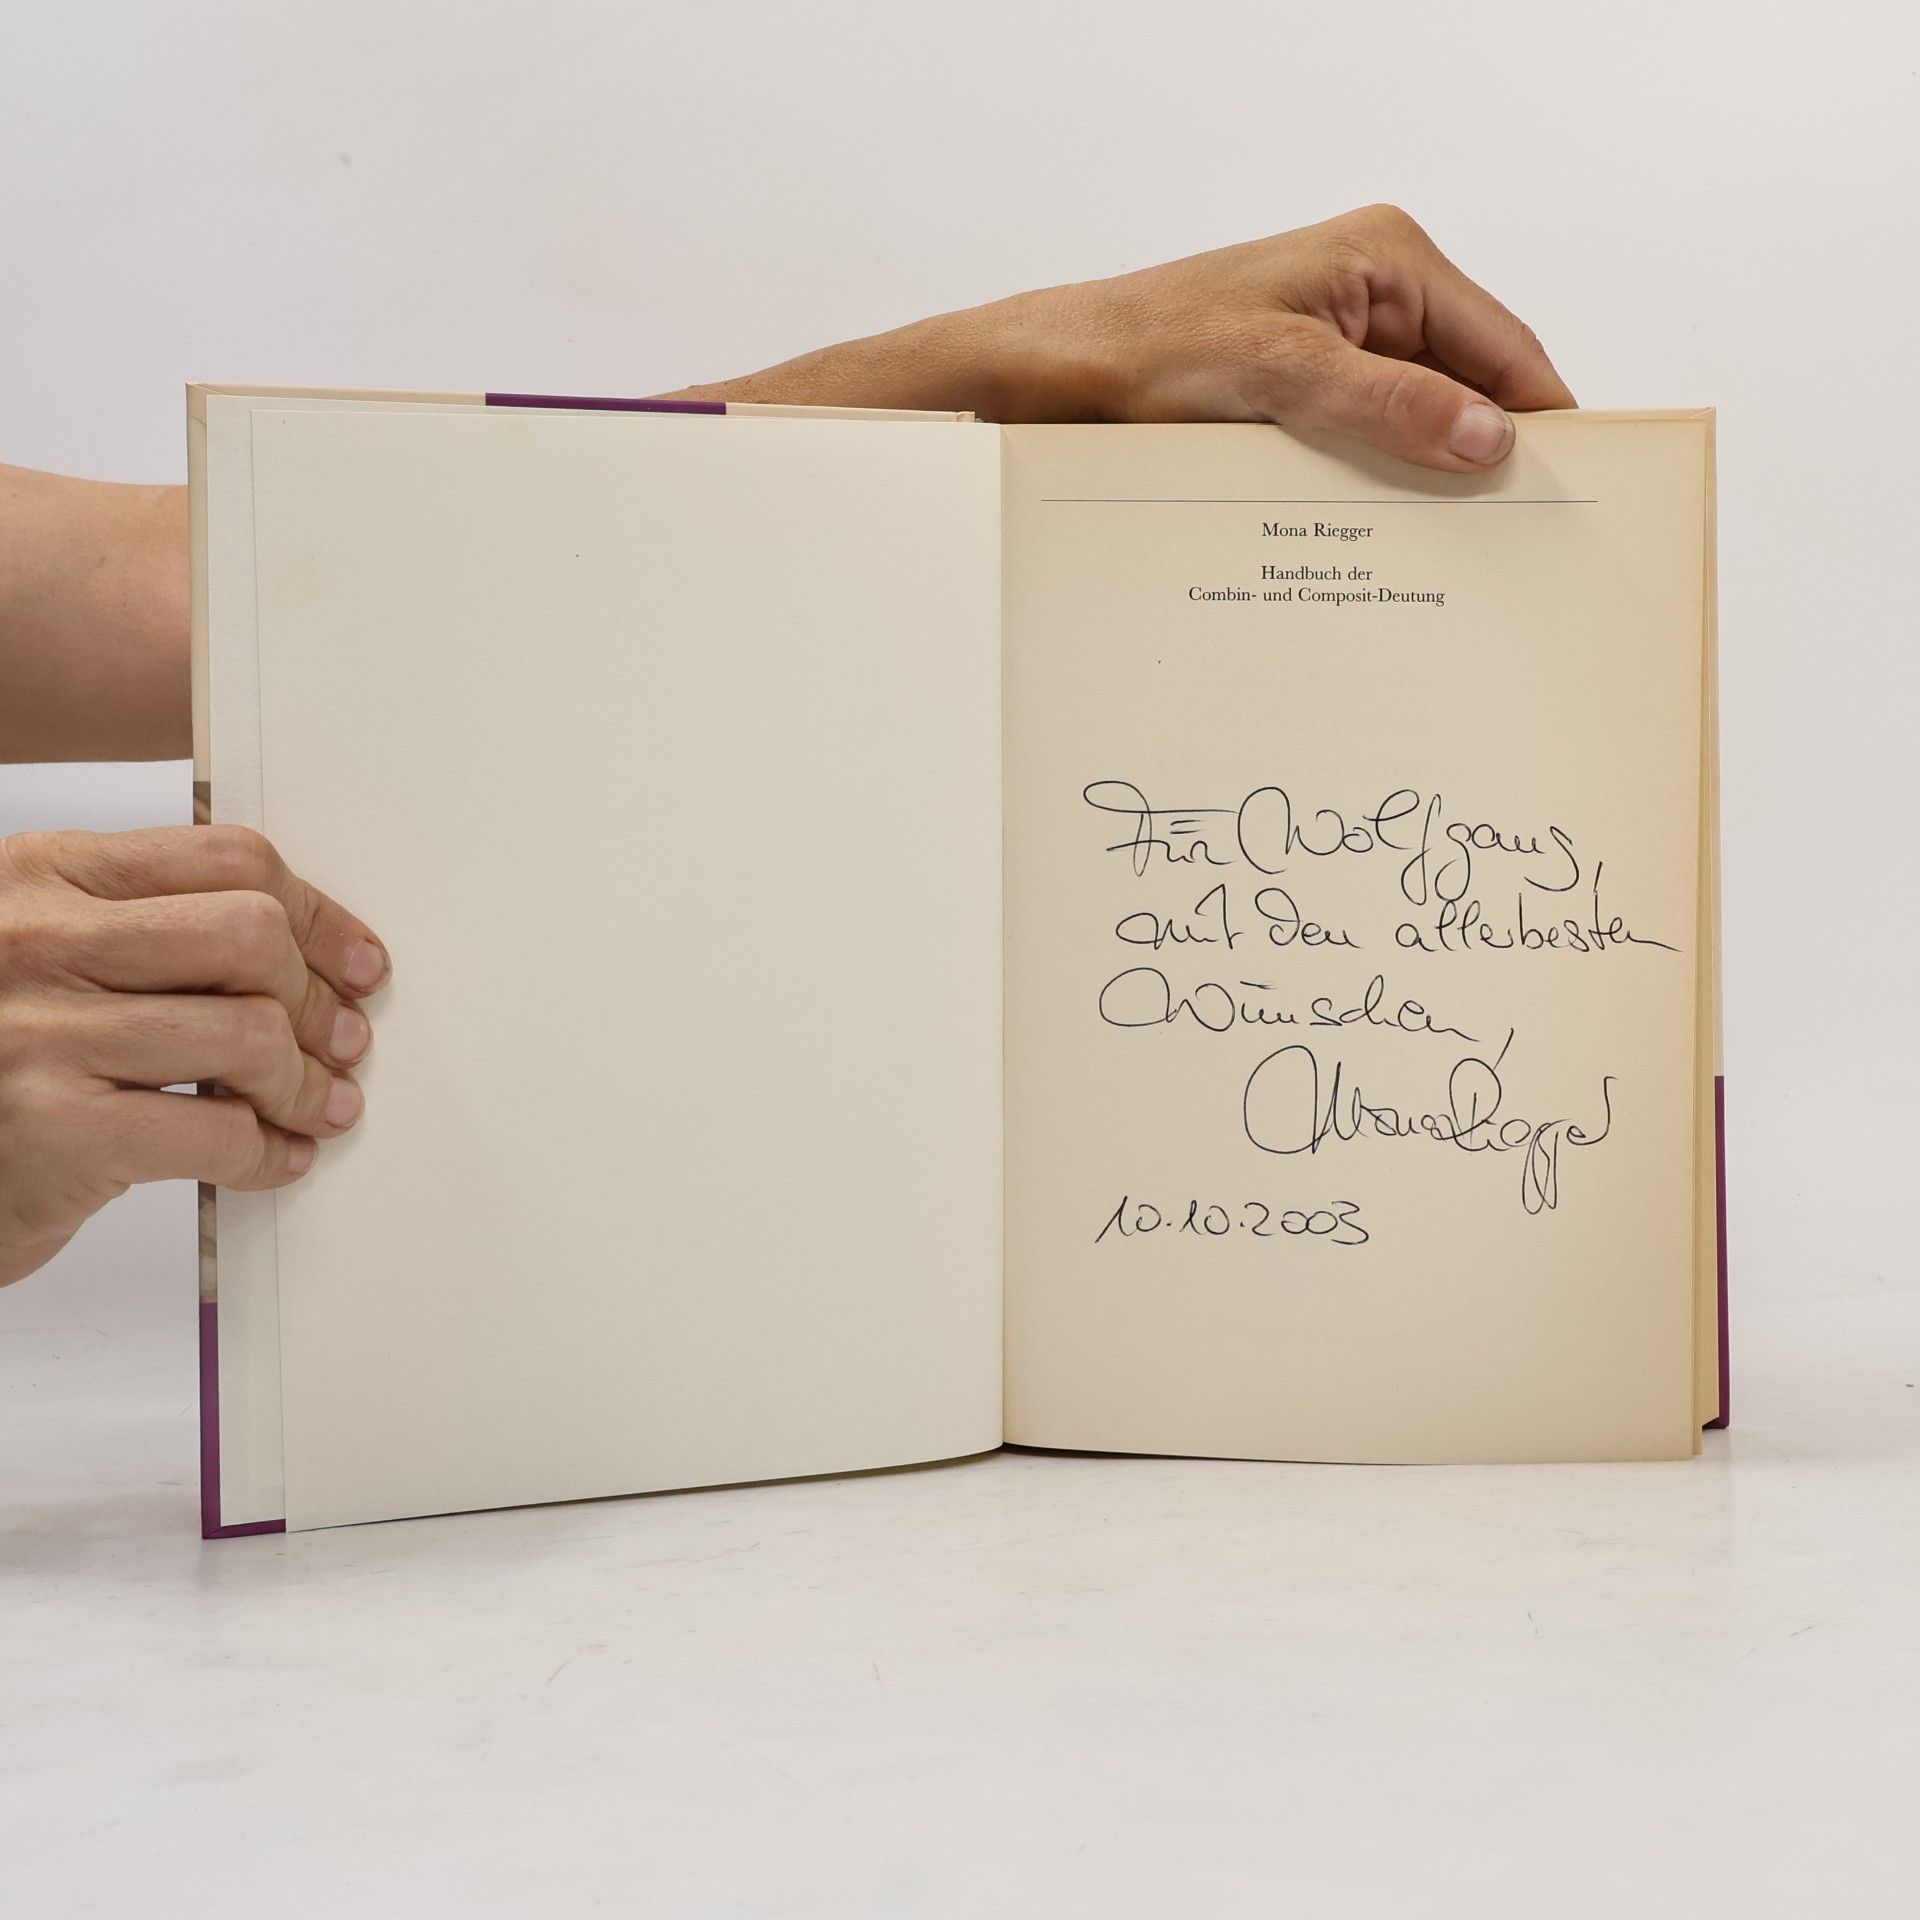 Mona Riegger
Handbuch der
Combin- und Composit-Deutung
Für Wolfgang,
mit den allerbesten
Wünschen,
Mona Riegger
10.10.2003